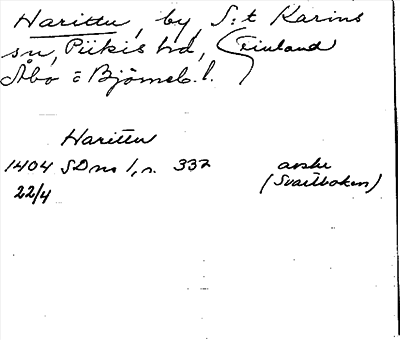 Harittu, by, S:t Karins
sn, Piikis hd, (Finland
Åbo o Björneb. l.
Harittu
1404 SD ns 1, n. 332 avskr
22/4 (Svartboken)